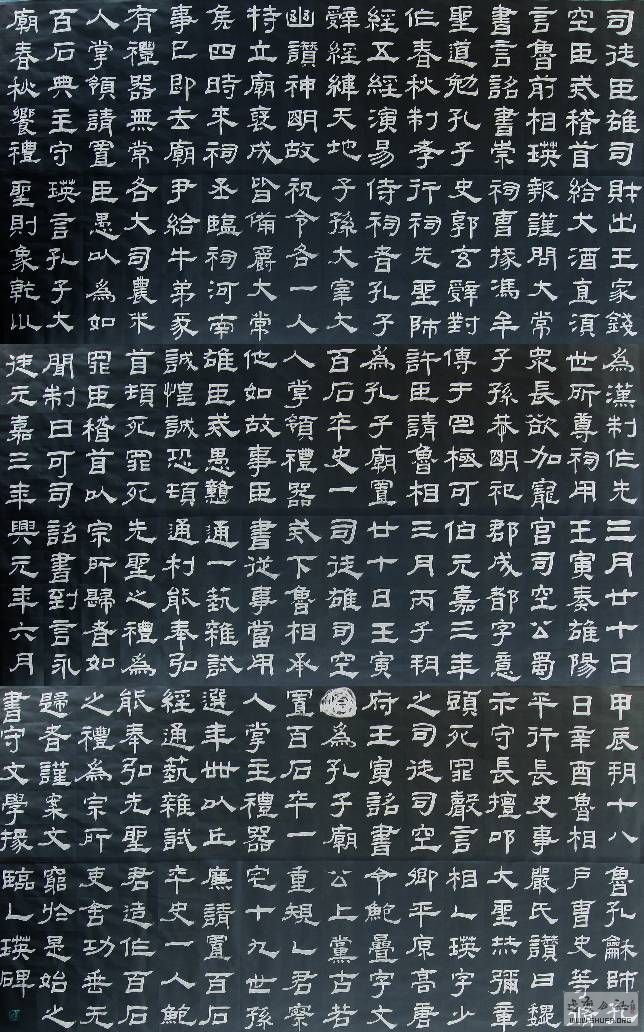 司徒臣雄司
空臣戒稽首
言魯前相瑛
書言詔書崇
聖道勉孔子
作春秋制孝
經五經演易
辤經緯天地
幽讚神明故
特立廟褒成
侯四時來祠
事已即去廟
有禮器無常
人掌領請置
百石典主守
廟春秋饗禮
財出王家錢
給大酒直須
報謹問大常
祠曹掾馮牟
史郭玄辤對
行祠先聖師
侍祠者孔子
子孫大宰大
祝令各一人
皆備爵大常
丞臨祠河南
尹給牛羊豕
各大司農米
臣愚以為如
瑛言孔子大
聖則象乾川
為漢制作先
世所尊祠用
眾長欲加寵
子孫恭明祀
傳于罔極可
許臣請魯相
為孔子廟置
百石卒史一
人掌領禮器
他如故事臣
雄臣戒愚戇
誠惶誠恐頓
首頓死罪死
罪臣稽首以
聞制曰可司
徒元嘉三年
三月廿十日
壬寅奏雒陽
官司空公蜀
郡成都字意
伯元嘉三年
三月丙子朔
廿十日壬寅
司徒雄司空
戒下魯相承
書從事當用
通一藝雜試
通利能奉弘
先聖之禮為
宗所歸者如
詔書到言永
興元年六月
甲辰朔十八
日辛酉魯相
平行長史事
卞守長擅叩
頭死罪敢言
之司徒司空
府壬寅詔書
為孔子廟
置百石卒一
人掌主禮器
選年卌以
經通藝雜試
能奉弘先聖
之禮為宗所
歸者謹案文
書守文學掾
魯孔龢師孔
戶曹史等修
嚴氏讚曰穆
大聖赫彌章
相乙瑛字少
卿平原高唐
令鮑疊字文
公上黨
重規乙君察
宅十九世孫
廉請置百石
卒史一人鮑
君造作百石
吏舍功垂無
窮於是始之
臨乙瑛碑
WWW.SHUFA.ORG